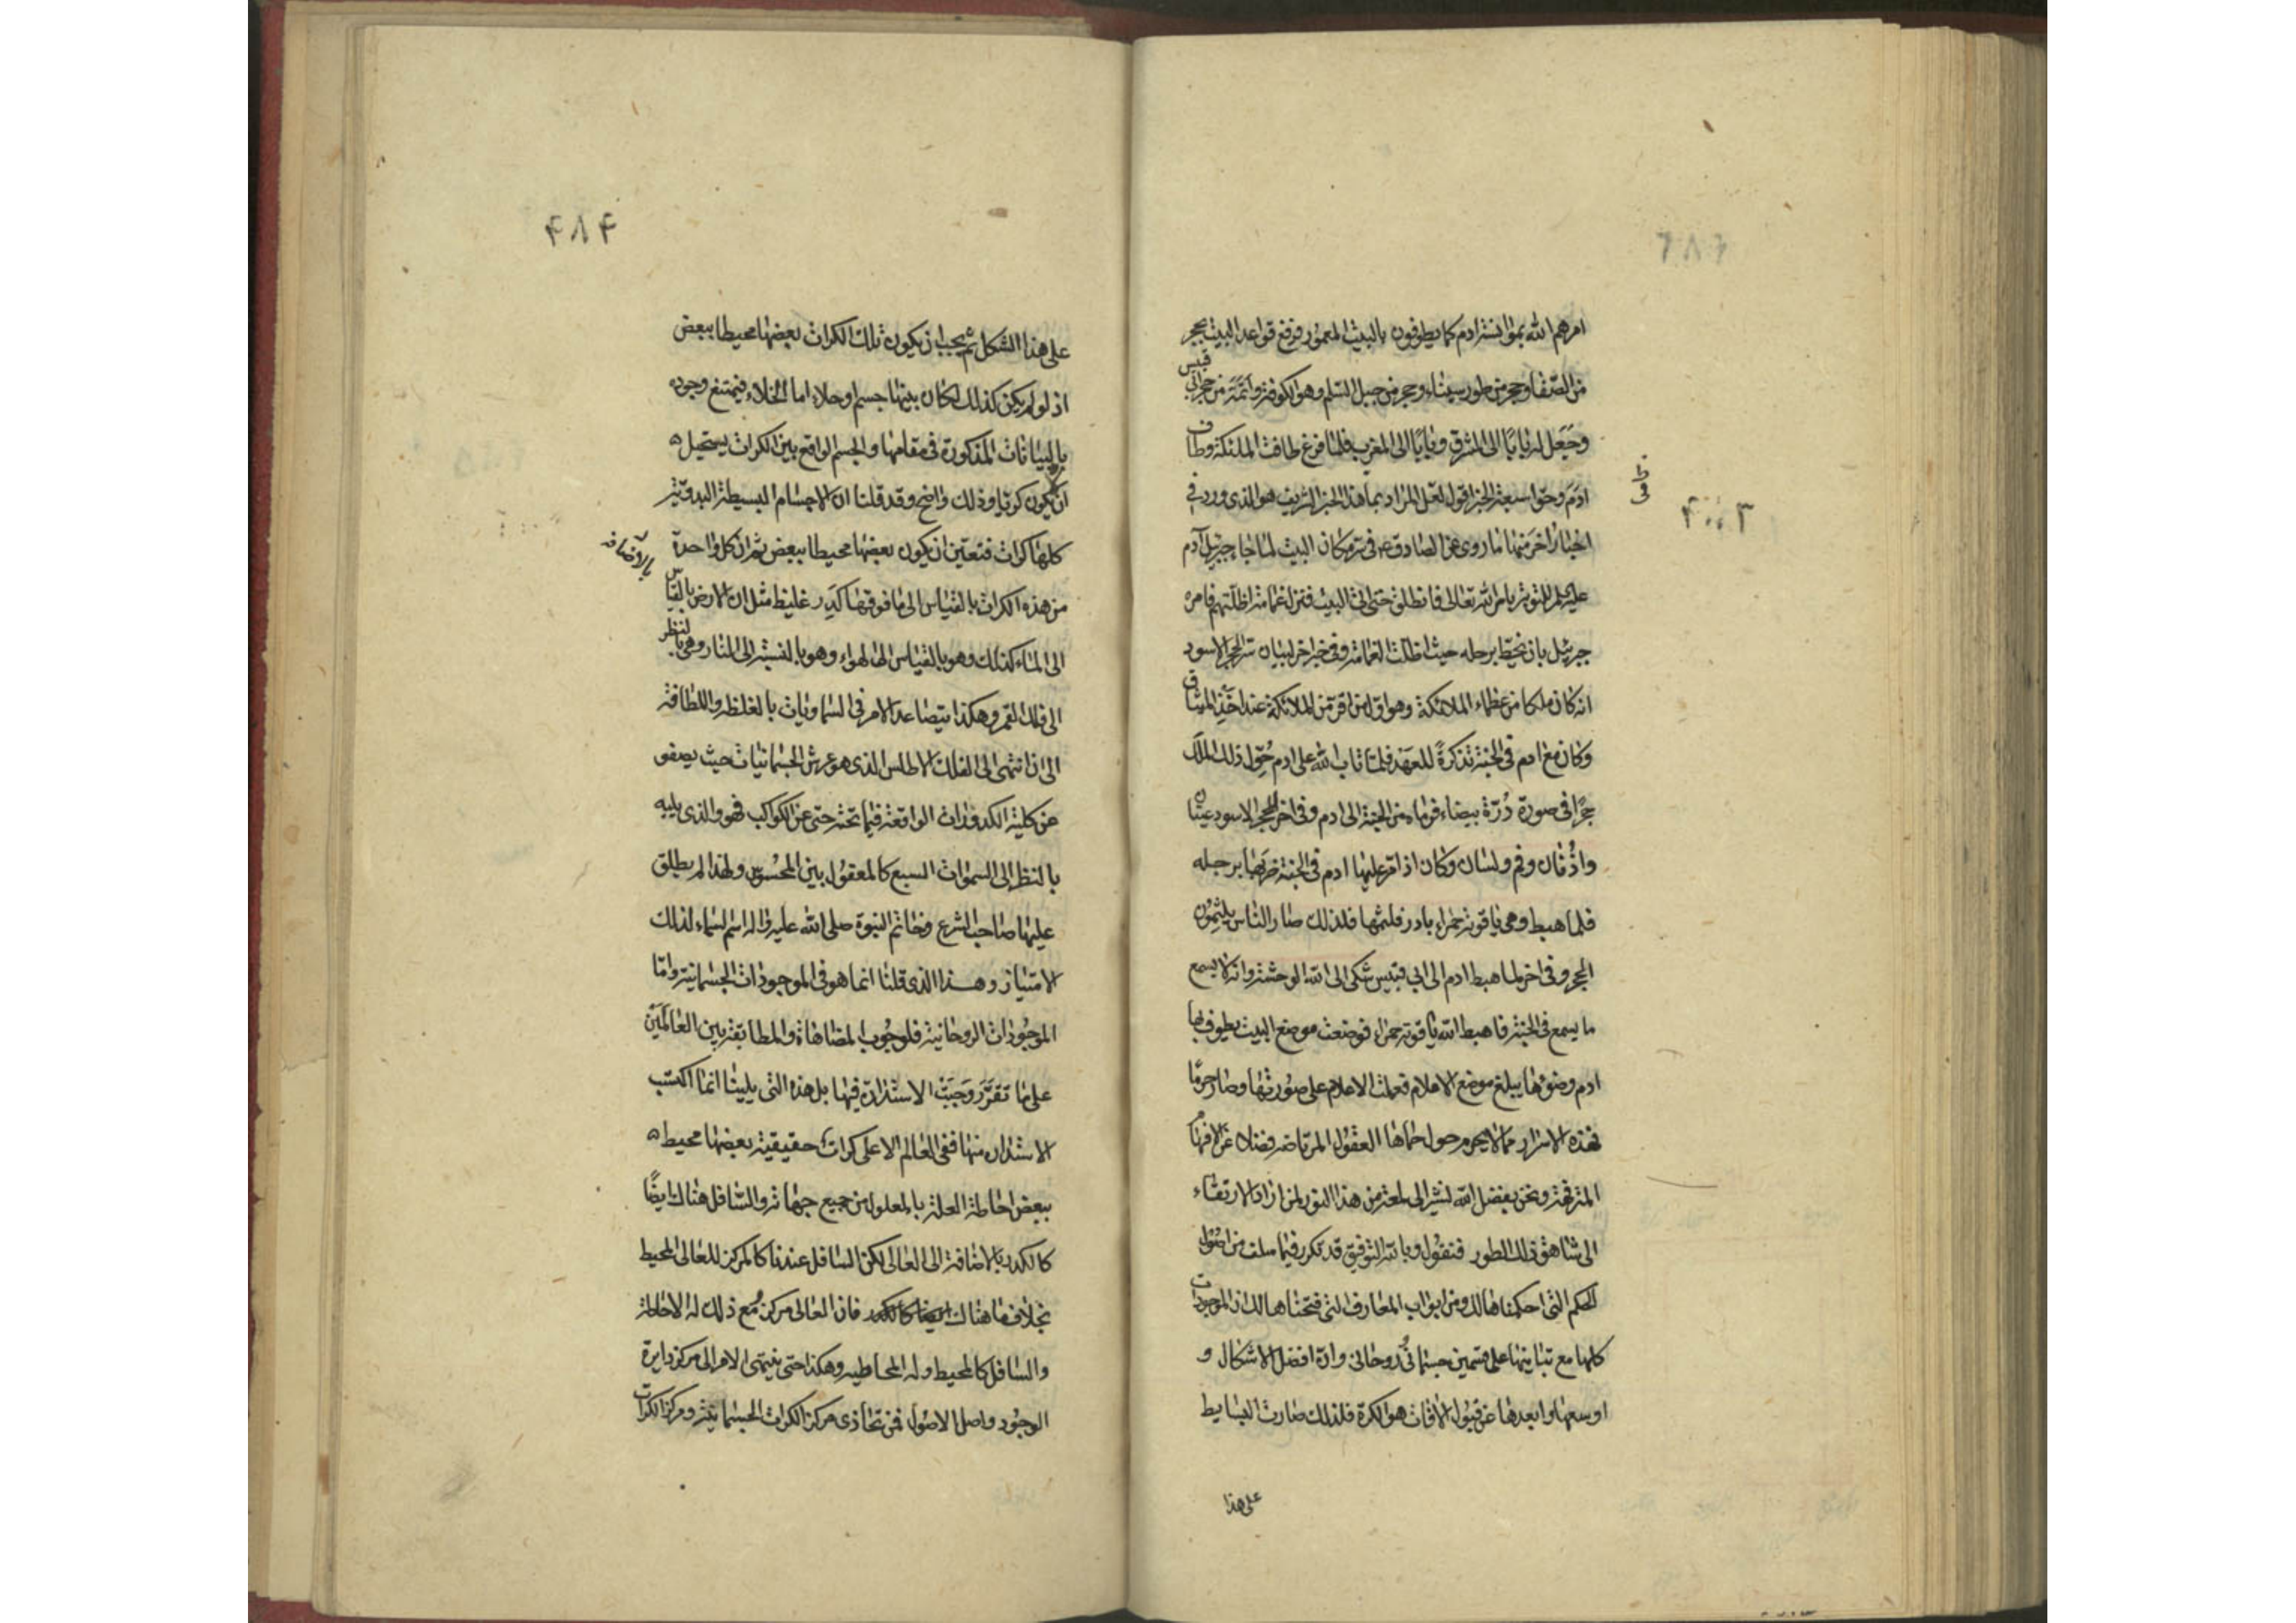 امرهم الله بموانسة ادم كما يطوفون بالبيت المعمور فرفع قواعد البيت بحجر
من الصّفا وحجر من طور سيناء وحجر من جبل السّلم وهو الكوفة واتمّه من حجر ابي قبيس
وجعل له بابًا الى المشرق وبابًا الى المغرب فلمّا فرغ طافت الملئكة وطاف
ادم وحوّا سبعة الخبر اقول لعل المراد بما هذا الخبر الشريف هو الذى ورد في
اخبار اخر منها ما روى عن الصادق ع في مكان البيت لما جاء جبرئيل آدم
عليه للتوبة بامر الله تعالى فانطلق حتى اتى البيت فنزل غمامة اظلّتهم فامره
جبرئيل بان يخطّ برجله حيث اظلّت الغمامة وفي خبر اخر لبيان سّر الحجر الاسود
انه كان ملكا من عظماء الملائكة وهو اول من اقر من الملائكة عند اخذ الميثاق
وكان مع ادم في الجنة تذكرةً للعهد فلمّا تاب الله على ادم حُوّل ذلك الملك
حجرًا في صورة دُرّة بيضاء فرماه من الجنة الى ادم وفي اخر للحجر الاسود عينان
واُذُنان وفم ولسان وكان اذا مرّ عليها ادم في الجنة ضربها برجله
فلما هبط وهى ياقوتة حمراء بادر فلثمها فلذلك صار الناس يلثمون
الحجر وفي اخر لما هبط ادم الى ابي قبيس شكى الى الله الوحشة وانه لا يسمع
ما يسمع في الجنة فاهبط الله ياقوتة حمراء فوضعت موضع البيت يطوف بها
ادم وضوئها يبلغ موضع الاعلام فعملت الاعلام على صورتها وصار حرمًا
فهذه الاسرار مما لا يحوم حول حماها العقول المرتاضة فضلا عن الافهام
المترفهة ونحن بفضل الله نشير الى لمعة من هذا النور لمن اراد الارتقاء
الى شاهق ذلك الطور فنقول وبالله التوفيق قد تكرر فيما سلف من اصول
الحكم التى احكمناها لك ومن ابواب المعارف التى فتحناها لك ان الموجودات
كلها مع تباينها على قسمين جسمانى وروحانى وانّ افضل الاشكال و
اوسعها وابعدها عن قبول الآفات هو الكرة فلذلك صارت البسايط
على هذا
۴۸۳
۴۸۴
على هذا الشكل ثم يجب ان يكون تلك الكرات بعضها محيطا ببعض
اذ لو لم يكن كذلك لكان بينها جسم او خلاء اما الخلاء فيمتنع وجوده
بالبيانات المذكورة في مقامها والجسم الواقع بين الكرات يستحيل
ان يكون كرويا وذلك واضح وقد قلنا ان الاجسام البسيطة البدوية
كلها كرات فتعين ان يكون بعضها محيطا ببعض ثم ان كل واحدة
بالاضافة
من هذه الكرات بالقياس الى ما فوقها كدر غليظ مثل ان الارض بالقياس
الى الماء كذلك وهو بالقياس الى الهواء وهو بالنسبة الى النار وهى بالنظر
الى فلك القمر وهكذا يتصاعد الامر في السماويات بالغلظ واللطافة
الى ان انتهى الى الفلك الاطلس الذى هو عرش الجسمانيات حيث يصفو
عن كلية الكدورات الواقعة فيما تحته حتى عن الكواكب فهو والذى يليه
بالنظر الى السموات السبع كالمعقول بين المحسوس ولهذا لم يطلق
عليها صاحب الشرع وخاتم النبوة صلى الله عليه واله اسم السماء لذلك
الامتياز وهذا الذى قلنا انما هو في الموجودات الجسمانية وامّا
الموجودات الروحانية فلوجوب المضاهاة والمطابقة بين العالمَين
على ما تقرَّر وَجَبَت الاستدارة فيها بل هذه التى يلينا انما اكتسب
الاستدارة منها ففي العالم الاعلى كرات حقيقية بعضها محيط
ببعض احاطة العلة بالمعلول من جميع جهاته والسّافل هناك ايضًا
كالكدر بالاضافة الى العالى لكن السافل عندنا كالمركز للعالى المحيط
بخلاف ما هناك فان العالى مركز ومع ذلك له الاحاطة
والسافل كالمحيط وله المحاطية وهكذا حتى ينتهى الامر الى مركز دايرة
الوجود واصل الاصول فمن تحاذى مركز الكرات الجسمانية ومركز الكرات